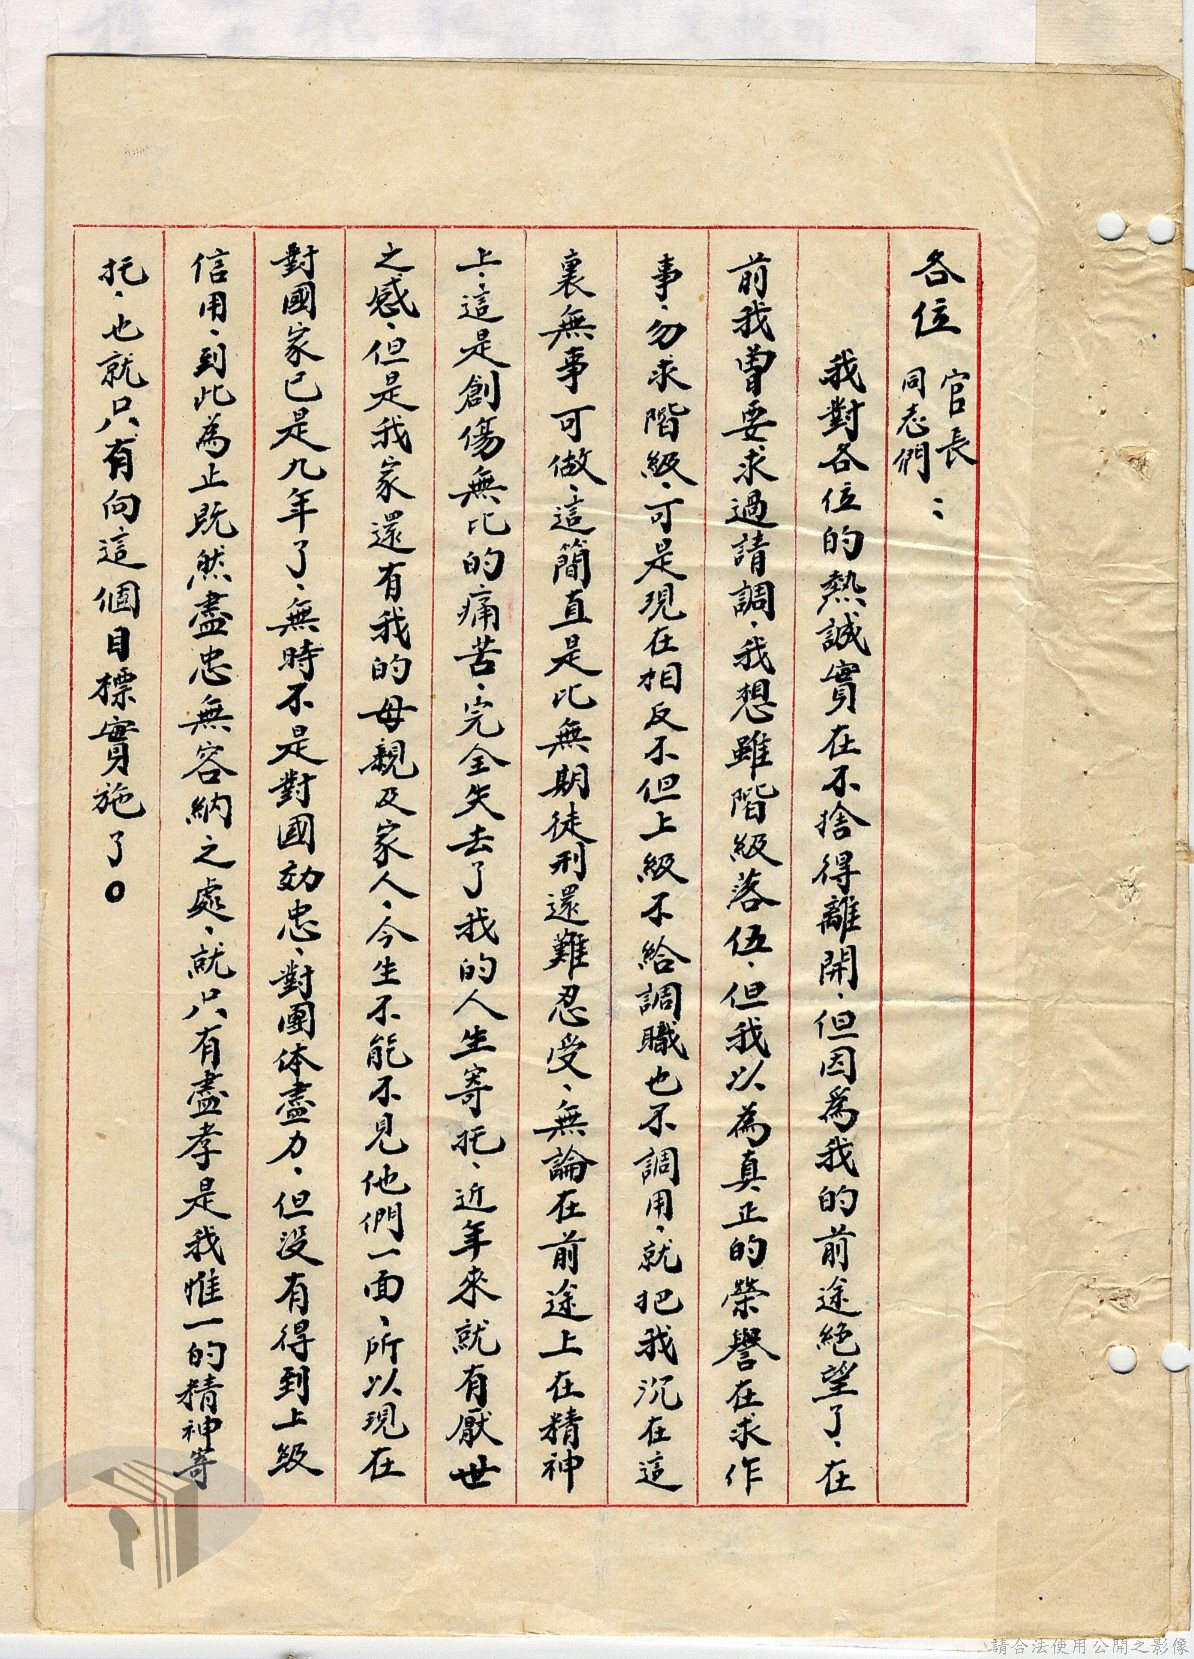 各位官長同志們：
我對各位的熱誠實在不捨得離開、但因為我的前途絕望了、在
前我曾要求過請調、我想雖階級落伍、但我以為真正的榮譽在求作
事、勿求階級、可是現在相反不但上級不給調職也不調用、就把我沉在這
裏無事可做、這簡直是比無期徒刑還難忍受、無論在前途上在精神
上、這是創傷無比的痛苦、完全失去了我的人生寄托、近年來就有厭世
之感、但是我家還有我的母親及家人、今生不能不見他們一面、所以現在
對國家已是九年了、無時不是對國効忠、對團体盡力、但沒有得到上級
信用、到此為止既然盡忠無容納之處、就只有盡孝是我惟一的精神寄
托、也就只有向這個目標實施了。
請合法使用公開之影像